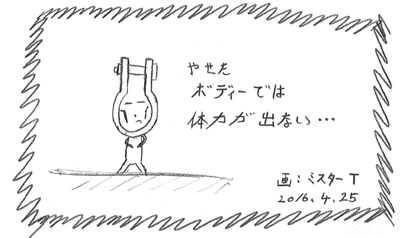 やせた
ボディーでは
体力が出ない…
画:ミスターT
2016.4.25